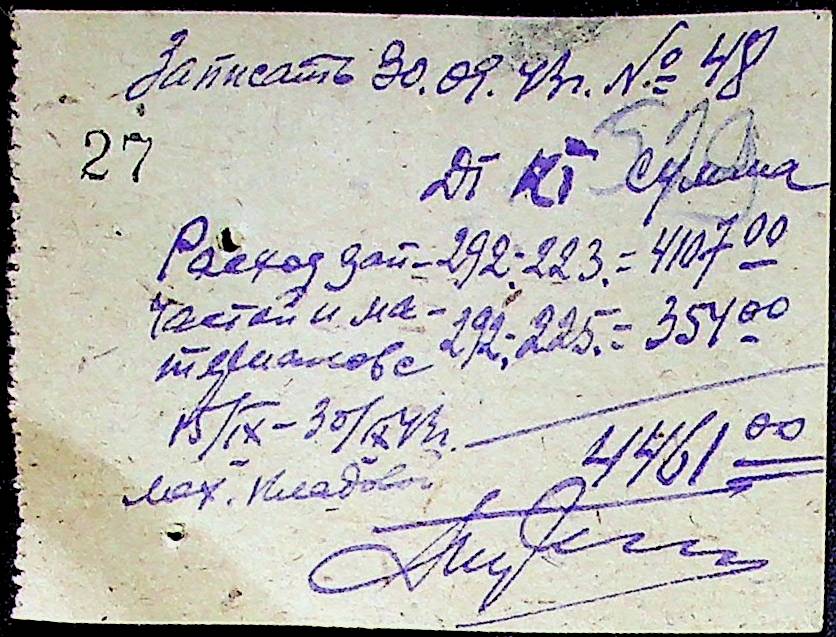 Записать 30.09.43г. № 48
27
Дт Кт сумма
Расход зап- 292. 223. = 4107 00
частей и ма- 292. 225. = 354 00
териалов с
15/IX - 30/IX 43г.
4461 00
мех. кладовой